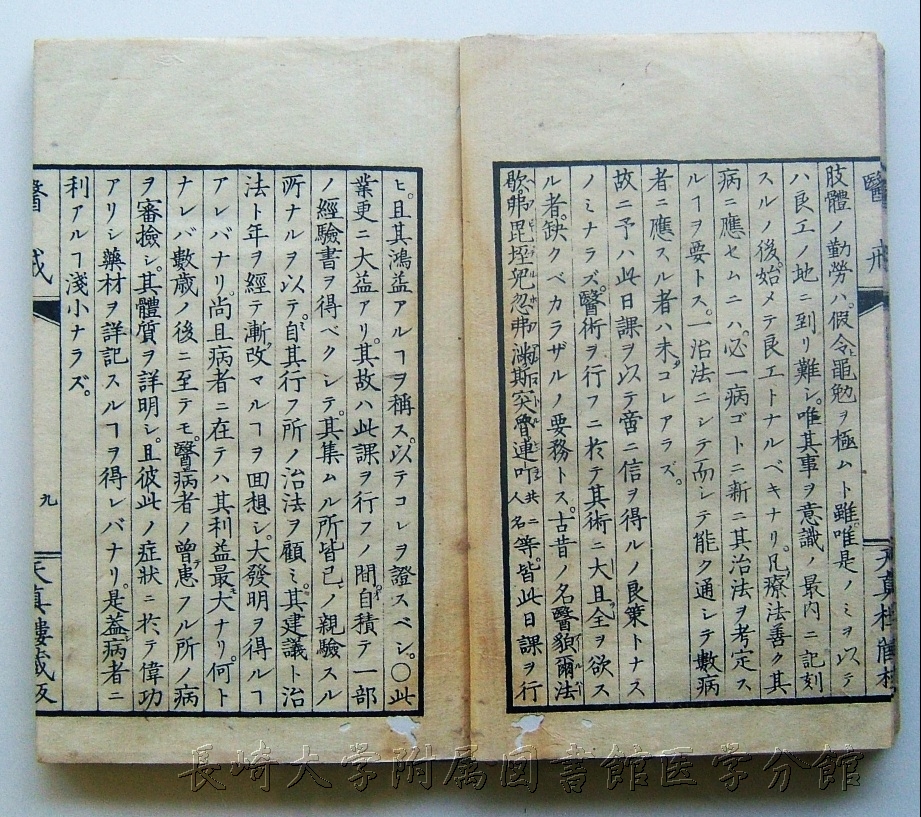 醫戒
肢體ノ勤勞ハ。假令黽勉ヲ極ムト雖。唯是ノミヲ以テ
ハ良工ノ地ニ到リ難シ。唯其事ヲ意識ノ最内ニ記刻
スルノ後。始メテ良工トナルベキナリ。凡療法善ク其
病ニ應セムニハ。必一病ゴトニ新ニ其治法ヲ考定ス
ルヿヲ要トス。一治法ニシテ而シテ能ク通シテ數病
者ニ應スル者ハ未。コレアラズ。
故ニ予ハ此日課ヲ以テ啻ニ信ヲ得ルノ良策トナス
ノミナラズ。醫術ヲ行フニ於テ其術ニ大且全ヲ欲ス
ル者。缺クベカラザルノ要務トス。古昔ノ名醫貌爾法
歇。弗毘垤兒忽弗。満斯突
連吅共ニ人名等。皆此日課ヲ行
天真樓藏板
ヒ。且其鴻益アルヿヲ稱ス。以テコレヲ證スベシ。〇此
業更ニ大益アリ。其故ハ此課ヲ行フノ間。自積テ一部
ノ經驗書ヲ得ベクシテ。其集ムル所皆已ノ親驗スル
所ナルヲ以テ。自其行フ所ノ治法ヲ顧ミ。其建議ト治
法ト年ヲ經テ漸改マルヿヲ回想シ。大發明ヲ得ルヿ
アレバナリ。尚且病者ニ在テハ其利益最大ナリ。何ト
ナレバ數歳ノ後ニ至テモ。醫病者ノ曾患フル所ノ病
ヲ審撿シ。其體質ヲ詳明シ。且彼此ノ症狀ニ於テ偉功
アリシ藥材ヲ詳記スルヿヲ得レバナリ。是蓋病者ニ
利アルヿ淺小ナラズ。
醫戒
九
天真樓藏板
長崎大学附属図書館医学分館